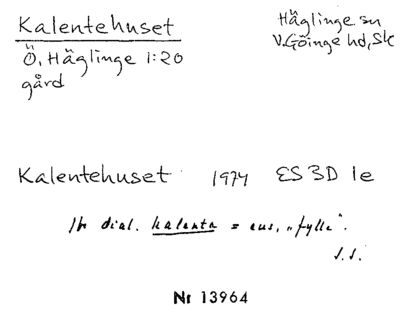 Kalentehuset
Häglinge sn
Ö. Häglinge 1:20
V. Göinge hd, Sk
gård
Kalentehuset 1974 ES 3D 1e
dial. kalenta = rus, "fylla".
S.S.
Nr 13964